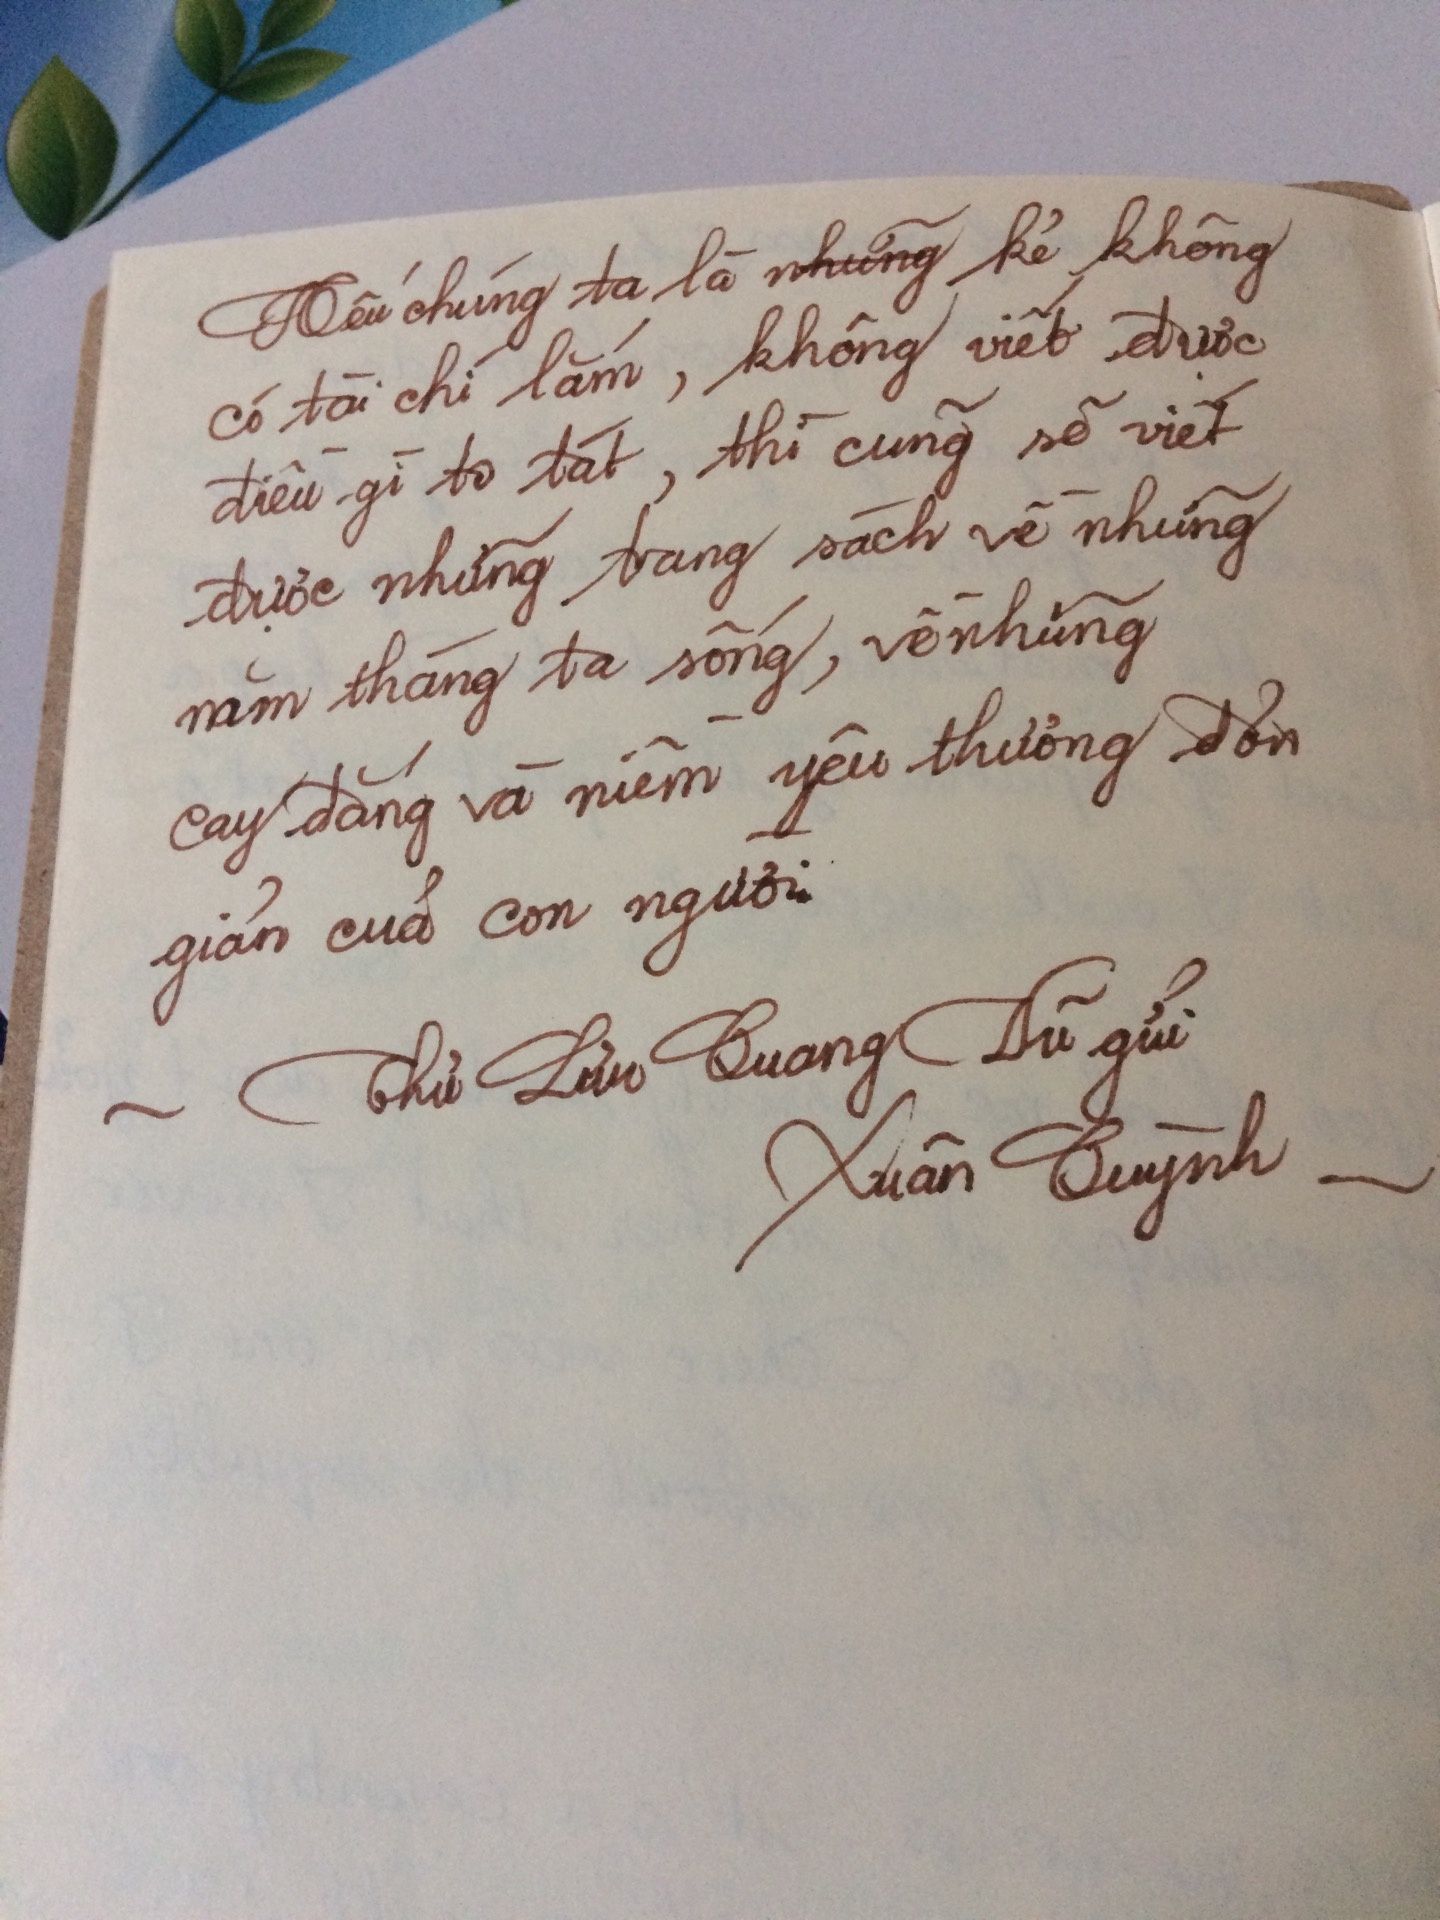 Nếu chúng ta là những kẻ không
có tài chi lắm, không viết được
điều gì to tát, thì cũng sẽ viết
được những trang sách về những
năm tháng ta sống, về những
cay đắng và niềm yêu thương đơn
giản của con người.
~ Thư Lưu Quang Vũ gửi
Xuân Quỳnh ~